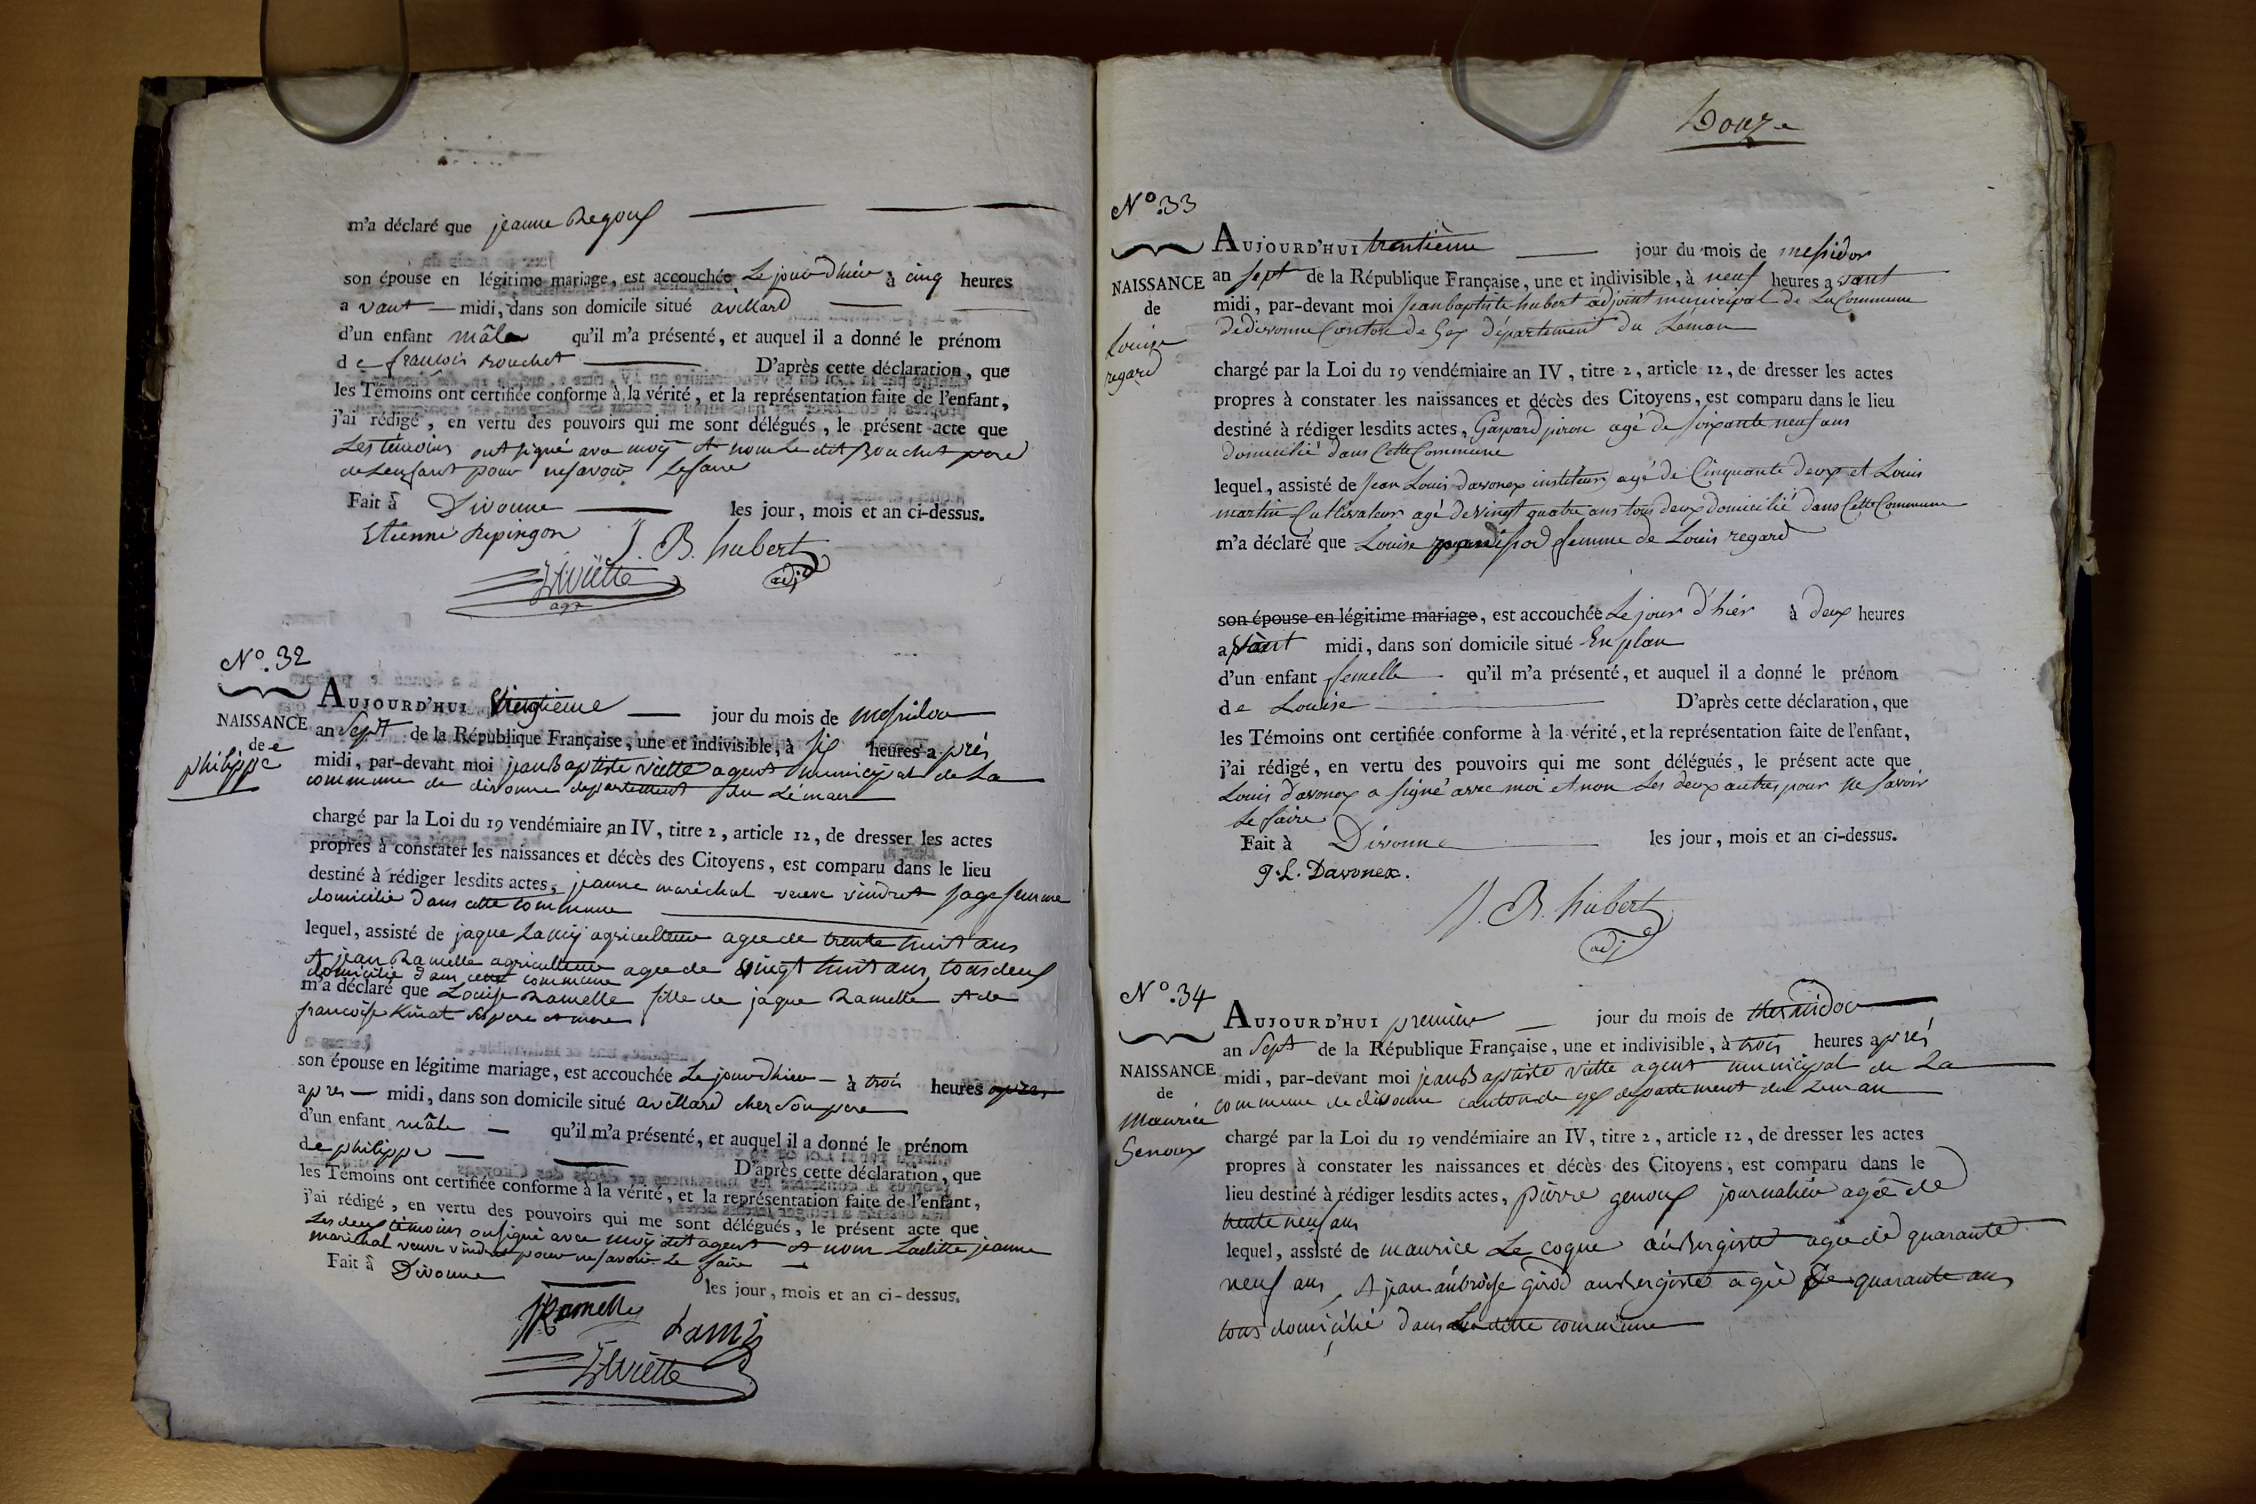 m'a déclaré que jeanne Regoux
son épouse en légitime mariage, est accouchée Le jour dhier à cinq heures
avant midi, dans son domicile situé avillard
d'un enfant mâle qu'il m'a présenté, et auquel il a donné le prénom
de francois Bouchet D'après cette déclaration, que
les Témoins ont certifiée conforme à la vérité, et la représentation faite de l'enfant,
j'ai rédigé, en vertu des pouvoirs qui me sont délégués, le présent acte que
Les témoins ont signé avec moy et nom Le dit Bouchet pere
de Lenfant pour ne savoir Le faire
Fait à Divonne les jour, mois et an ci-dessus.
Etienne Repingon J. B. hubert
adj
JBviette
agt
N°. 32
NAISSANCE
de
philippe
AUJOURD'HUI vingtieme jour du mois de messidor
an Sept de la République Française, une et indivisible, à six heures après
midi, par-devant moi jean Baptiste viette agent municipal de La
commune de divonne departement du Léman
chargé par la Loi du 19 vendémiaire an IV, titre 2, article 12, de dresser les actes
propres à constater les naissances et décès des Citoyens, est comparu dans le lieu
destiné à rédiger lesdits actes, jeanne maréchal veuve vindret sage femme
domicilié dans cette commune
lequel, assisté de jaque Lamy agriculteur agee de trente huit ans
et jean Ramelle agriculteur agee de vingt huit ans, tous deux
domicilié dans cette commune
m'a déclaré que Louise Ramelle fille de jaque Ramelle et de
francoise ses pere et mere
son épouse en légitime mariage, est accouchée Le jour dhier à trois heures apres
apres midi, dans son domicile situé avillard cher son pere
d'un enfant mâle qu'il m'a présenté, et auquel il a donné le prénom
de philippe D'après cette déclaration, que
les Témoins ont certifiée conforme à la vérité, et la représentation faite de l'enfant,
j'ai rédigé, en vertu des pouvoirs qui me sont délégués, le présent acte que
Les deux témoins on signé avec moy dit agent et nom Laditte jeanne
maréchal veuve vindret pour ne savoir Le faire
Fait à Divonne les jour, mois et an ci-dessus.
JRamelle Lamy
JBviette
Douze
N°. 33
NAISSANCE
de
Louise
regard
AUJOURD'HUI trentième jour du mois de messidor
an sept de la République Française, une et indivisible, à neuf heures avant
midi, par-devant moi Jean baptiste hubert adjoint municipal de La Commune
de divonne Canton de Gex département du Léman
chargé par la Loi du 19 vendémiaire an IV, titre 2, article 12, de dresser les actes
propres à constater les naissances et décès des Citoyens, est comparu dans le lieu
destiné à rédiger lesdits actes, Gaspard agé de soixante neuf ans
domicilié dans Cette Commune
lequel, assisté de Jean Louis davonex instituteur agé de Cinquante deux et Louis
martin Cultivateur agé de vingt quatre ans tous deux domicilié dans Cette Commune
m'a déclaré que Louise femme de Louis regard
son épouse en légitime mariage, est accouchée Le jour d'hiér à deux heures
avant midi, dans son domicile situé En plan
d'un enfant femelle qu'il m'a présenté, et auquel il a donné le prénom
de Louise D'après cette déclaration, que
les Témoins ont certifiée conforme à la vérité, et la représentation faite de l'enfant,
j'ai rédigé, en vertu des pouvoirs qui me sont délégués, le présent acte que
Louis davonex a signé avec moi et non Les deux autres pour ne savoir
Le faire
Fait à Divonne les jour, mois et an ci-dessus.
J. L. Davonex.
J. B. hubert
adj
N°. 34
NAISSANCE
de
Maurice
Genoux
AUJOURD'HUI premier jour du mois de thermidor
an Sept de la République Française, une et indivisible, à trois heures après
midi, par-devant moi jean Baptiste viette agent municipal de La
commune de divonne canton de gex departement du Leman
chargé par la Loi du 19 vendémiaire an IV, titre 2, article 12, de dresser les actes
propres à constater les naissances et décès des Citoyens, est comparu dans le
lieu destiné à rédiger lesdits actes, pierre genoux journalier agée de
trente neuf ans
lequel, assisté de maurice Le coque aubergiste agée de quarante
neuf ans, et jean ambroise girod aubergiste agée de quarante ans
tous domicilié dans Laditte commune